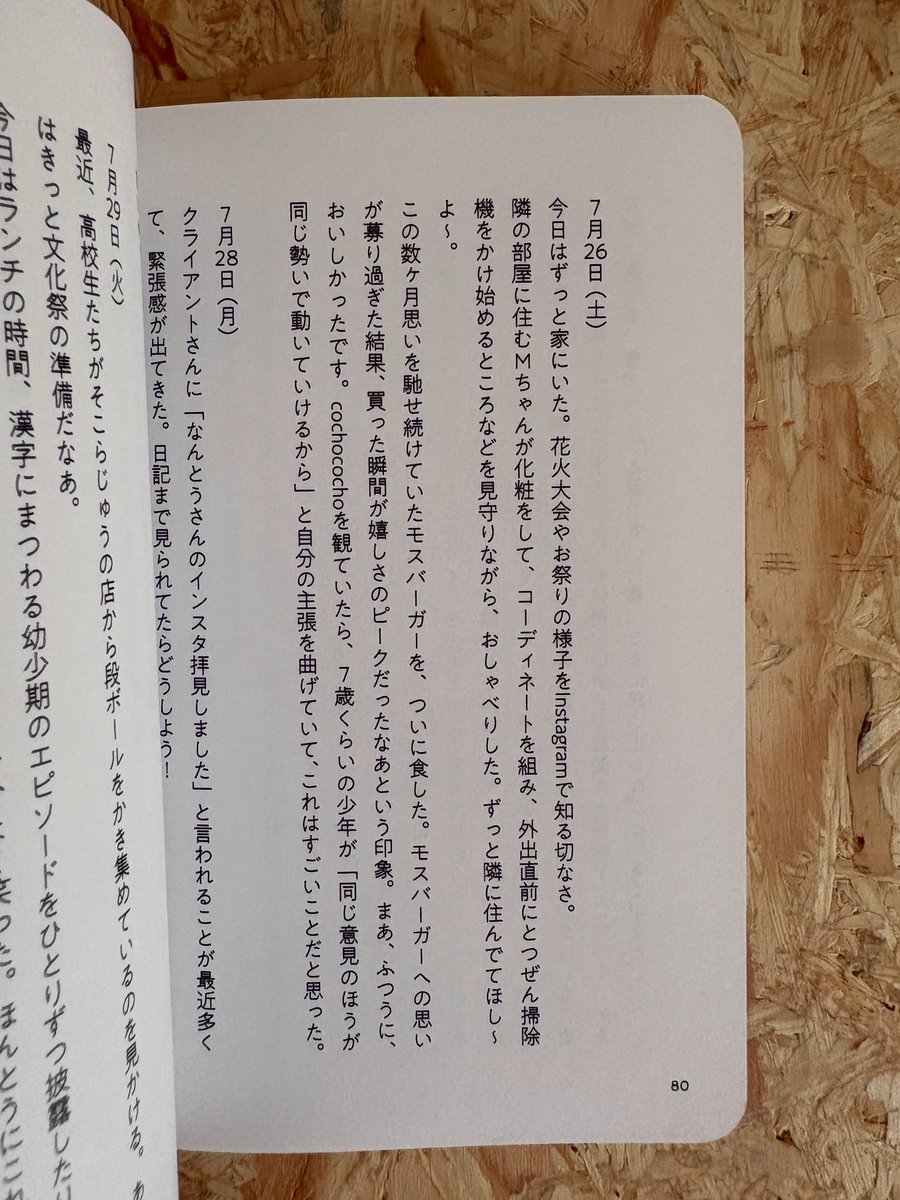 7月26日（土）
今日はずっと家にいた。花火大会やお祭りの様子をInstagramで知る切なさ。
隣の部屋に住むMちゃんが化粧をして、コーディネートを組み、外出直前にとつぜん掃除
機をかけ始めるところなどを見守りながら、おしゃべりした。ずっと隣に住んでてほし〜
よ〜。
この数ヶ月思いを馳せ続けていたモスバーガーを、ついに食した。モスバーガーへの思い
が募り過ぎた結果、買った瞬間が嬉しさのピークだったなあという印象。まあ、ふつうに、
おいしかったです。cochocochoを観ていたら、7歳くらいの少年が「同じ意見のほうが
同じ勢いで動いていけるから」と自分の主張を曲げていて、これはすごいことだと思った。
7月28日（月）
クライアントさんに「なんとうさんのインスタ拝見しました」と言われることが最近多く
て、緊張感が出てきた。日記まで見られてたらどうしよう！
7月29日（火）
最近、高校生たちがそこらじゅうの店から段ボールをかき集めているのを見かける。あ
はきっと文化祭の準備だなあ。
今日はランチの時間、漢字にまつわる幼少期のエピソードをひとりずつ披露したり
笑った。ほんとうにこれ
80